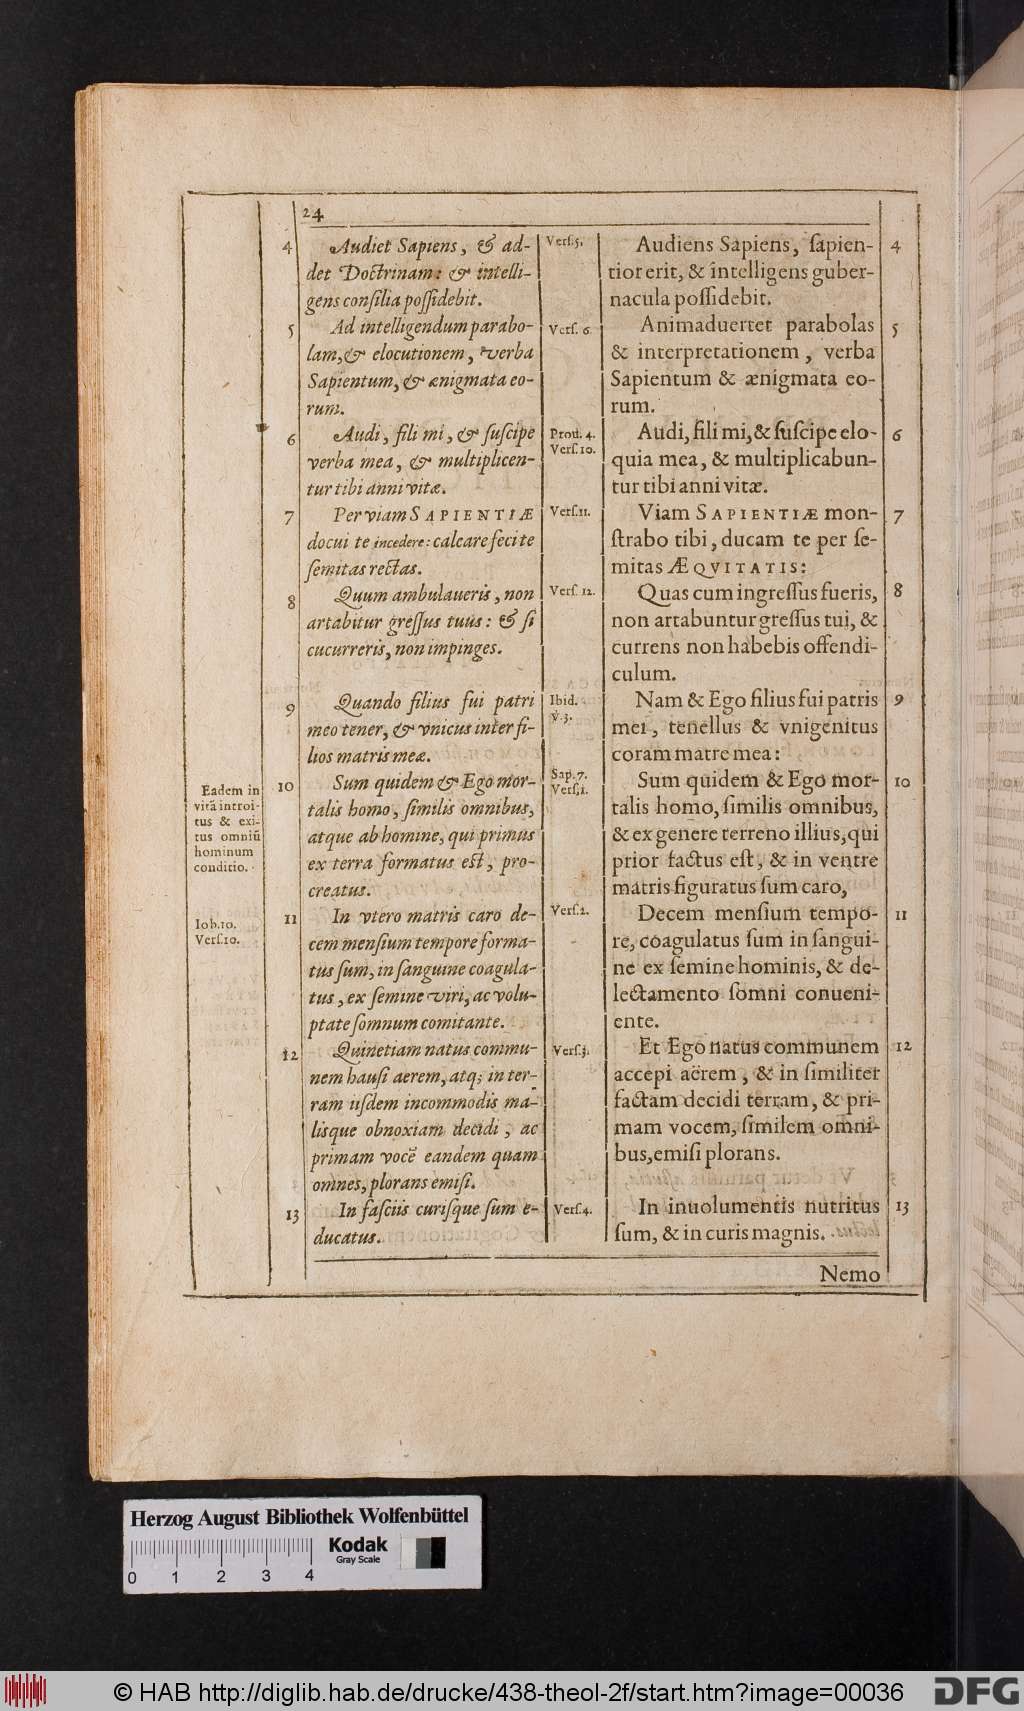 24
4
Audiet Sapiens, & ad-
det Doctrinam: & intelli-
gens conſilia poſſidebit.
5
Ad intelligendum parabo-
lam, & elocutionem, verba
Sapientum, & ænigmata eo-
rum.
6
Audi, fili mi, & ſuſcipe
verba mea, & multiplicen-
tur tibi anni vitæ.
7
Per viam SAPIENTIÆ
docui te incedere: calcare feci te
ſemitas rectas.
8
Quum ambulaueris, non
artabitur greſſus tuus: & ſi
cucurreris, non impinges.
9
Quando filius fui patri
meo tener, & vnicus inter fi-
lios matris meæ.
Eadem in
vitā introi-
tus & exi-
tus omniū
hominum
conditio.
10
Sum quidem & Ego mor-
talis homo, ſimilis omnibus,
atque ab homine, qui primus
ex terra formatus eſt, pro-
creatus.
Iob.10.
Verſ.10.
11
In vtero matris caro de-
cem menſium tempore forma-
tus ſum, in ſanguine coagula-
tus, ex ſemine viri, ac volu-
ptate ſomnum comitante.
12
Quinetiam natus commu-
nem hauſi aerem, atq; in ter-
ram iiſdem incommodis ma-
lisque obnoxiam decidi, ac
primam vocē eandem quam
omnes, plorans emiſi.
13
In faſciis curiſque ſum e-
ducatus.
Verſ.5.
Verſ. 6.
Prou. 4.
Verſ.10.
Verſ.11.
Verſ. 12.
Ibid.
v.3.
Sap.7.
Verſ.1.
Verſ.2.
Verſ.3.
Verſ.4.
Audiens Sapiens, ſapien-
tior erit, & intelligens guber-
nacula poſſidebit.
4
Animaduertet parabolas
& interpretationem, verba
Sapientum & ænigmata eo-
rum.
5
Audi, fili mi, & ſuſcipe elo-
quia mea, & multiplicabun-
tur tibi anni vitæ.
6
Viam SAPIENTIÆ mon-
ſtrabo tibi, ducam te per ſe-
mitas ÆQVITATIS:
7
Quas cum ingreſſus fueris,
non artabuntur greſſus tui, &
currens non habebis offendi-
culum.
8
Nam & Ego filius fui patris
mei, tenellus & vnigenitus
coram matre mea:
9
Sum quidem & Ego mor-
talis homo, ſimilis omnibus,
& ex genere terreno illius, qui
prior factus eſt, & in ventre
matris figuratus ſum caro,
10
Decem menſium tempo-
re, coagulatus ſum in ſangui-
ne ex ſemine hominis, & de-
lectamento ſomni conueni-
ente.
11
Et Ego natus communem
accepi aërem, & in ſimiliter
factam decidi terram, & pri-
mam vocem, ſimilem omni-
bus, emiſi plorans.
12
In inuolumentis nutritus
ſum, & in curis magnis.
13
Nemo
Herzog August Bibliothek Wolfenbüttel
Kodak
Gray Scale
0 1 2 3 4
© HAB http://diglib.hab.de/drucke/438-theol-2f/start.htm?image=00036
DFG